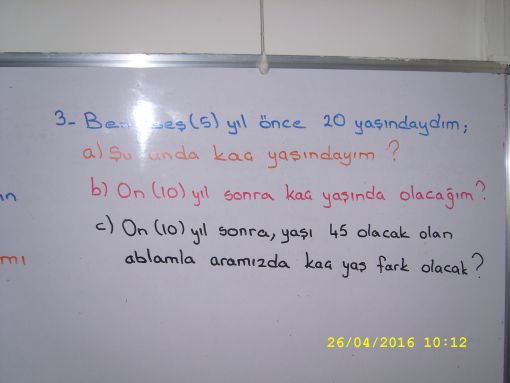 3- Ben beş (5) yıl önce 20 yaşındaydım;
a) Şu anda kaç yaşındayım?
b) On (10) yıl sonra kaç yaşında olacağım?
c) On (10) yıl sonra, yaşı 45 olacak olan
ablamla aramızda kaç yaş fark olacak?
ın
mı
26/04/2016 10:12